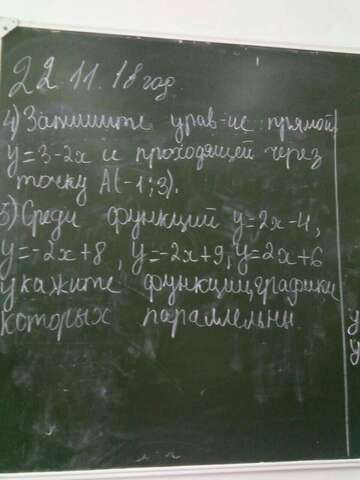 22.11.18 год.
4) Запишите урав-ие прямой
y=3-2x и проходящей через
точку A(-1;3).
5) Среди функций y=2x-4,
y=-2x+8, y=-2x+9, y=2x+6
укажите функции, графики
которых параллельны.
y
y